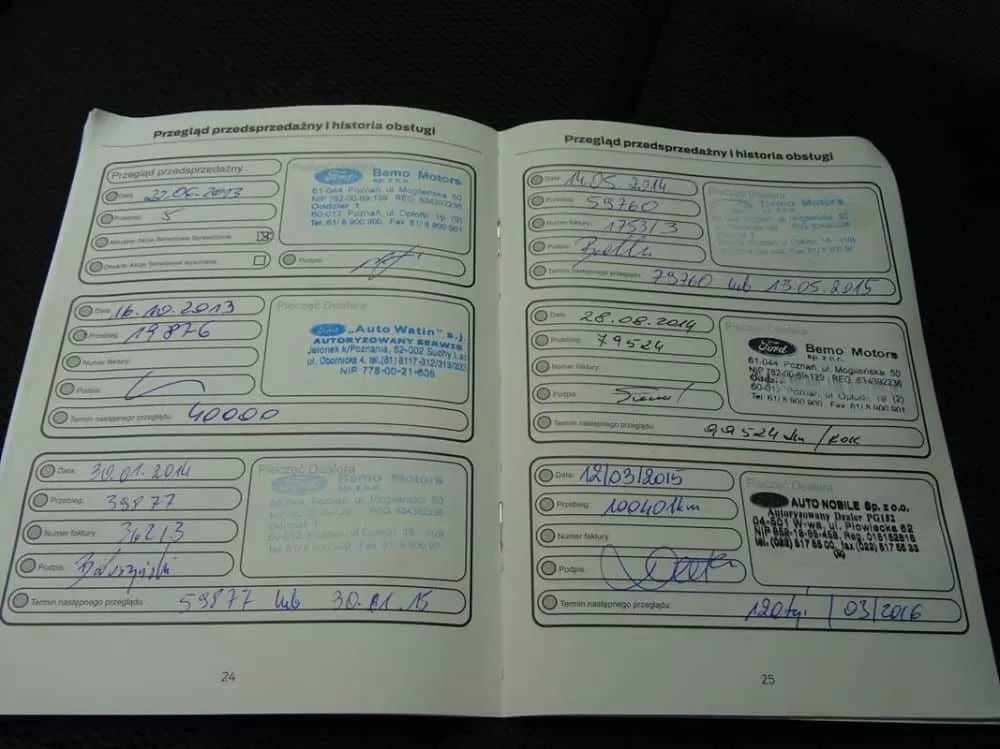 Przegląd przedsprzedażny i historia obsługi
Przegląd przedsprzedażny
Data: 22.06.2013
Przebieg: 5
Aktualne Akcje Serwisowe Sprawdzono
Otwarte Akcje Serwisowe wykonano
Podpis:
Pieczęć Dealera
Ford Bemo Motors
sp. z o.o.
61-044 Poznań, ul. Mogileńska 50
NIP 782-00-89-129 REG. 634392236
Oddział 1
60-012 Poznań, ul. Opłotki 19
Tel. 61/ 8 900 900, Fax. 61/ 8 900 901
Data: 16.10.2013
Przebieg: 19876
Numer faktury:
Podpis:
Termin następnego przeglądu: 40000
Pieczęć Dealera
Ford „Auto Watin" s.j.
AUTORYZOWANY SERWIS
Jelonek k/Poznania, 62-002 Suchy Las
ul. Obornicka 4, tel. (61) 8117-312/313/333
NIP 778-00-21-608
Data: 30.01.2014
Przebieg: 39877
Numer faktury: 362/3
Podpis:
Termin następnego przeglądu: 59877 lub 30.01.15
Pieczęć Dealera
Bemo Motors
sp. z o.o.
Poznań, ul. Mogileńska 50
Oddział 1
Poznań, ul. Opłotki
24
Przegląd przedsprzedażny i historia obsługi
Data: 14.05.2014
Przebieg: 59760
Numer faktury: 1753/3
Podpis:
Termin następnego przeglądu: 79760 lub 13.05.2015
Bemo Motors
Data: 28.08.2014
Przebieg: 79524
Numer faktury:
Podpis:
Termin następnego przeglądu: 99524 km / rok
Pieczęć Dealera
Ford Bemo Motors
sp. z o.o.
61-044 Poznań, ul. Mogileńska 50
NIP 782-00-89-129 REG. 634392236
60-012 Poznań, ul. Opłotki 19 (2)
Tel. 61/ 8 900 900, Fax. 61/ 8 900 901
Data: 12/03/2015
Przebieg: 100401km
Numer faktury:
Podpis:
Termin następnego przeglądu: 120 tyś / 03/2016
Pieczęć Dealera
AUTO NOBILE Sp. z o.o.
Autoryzowany Dealer PG152
04-501 W-wa, ul. Płowiecka 62
25